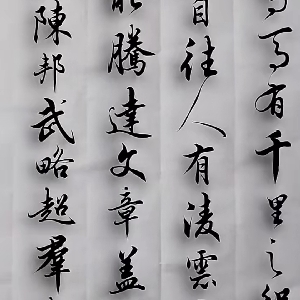 馬有千里之程
自往人有凌雲
能騰達文章盖
陳邦武略超羣